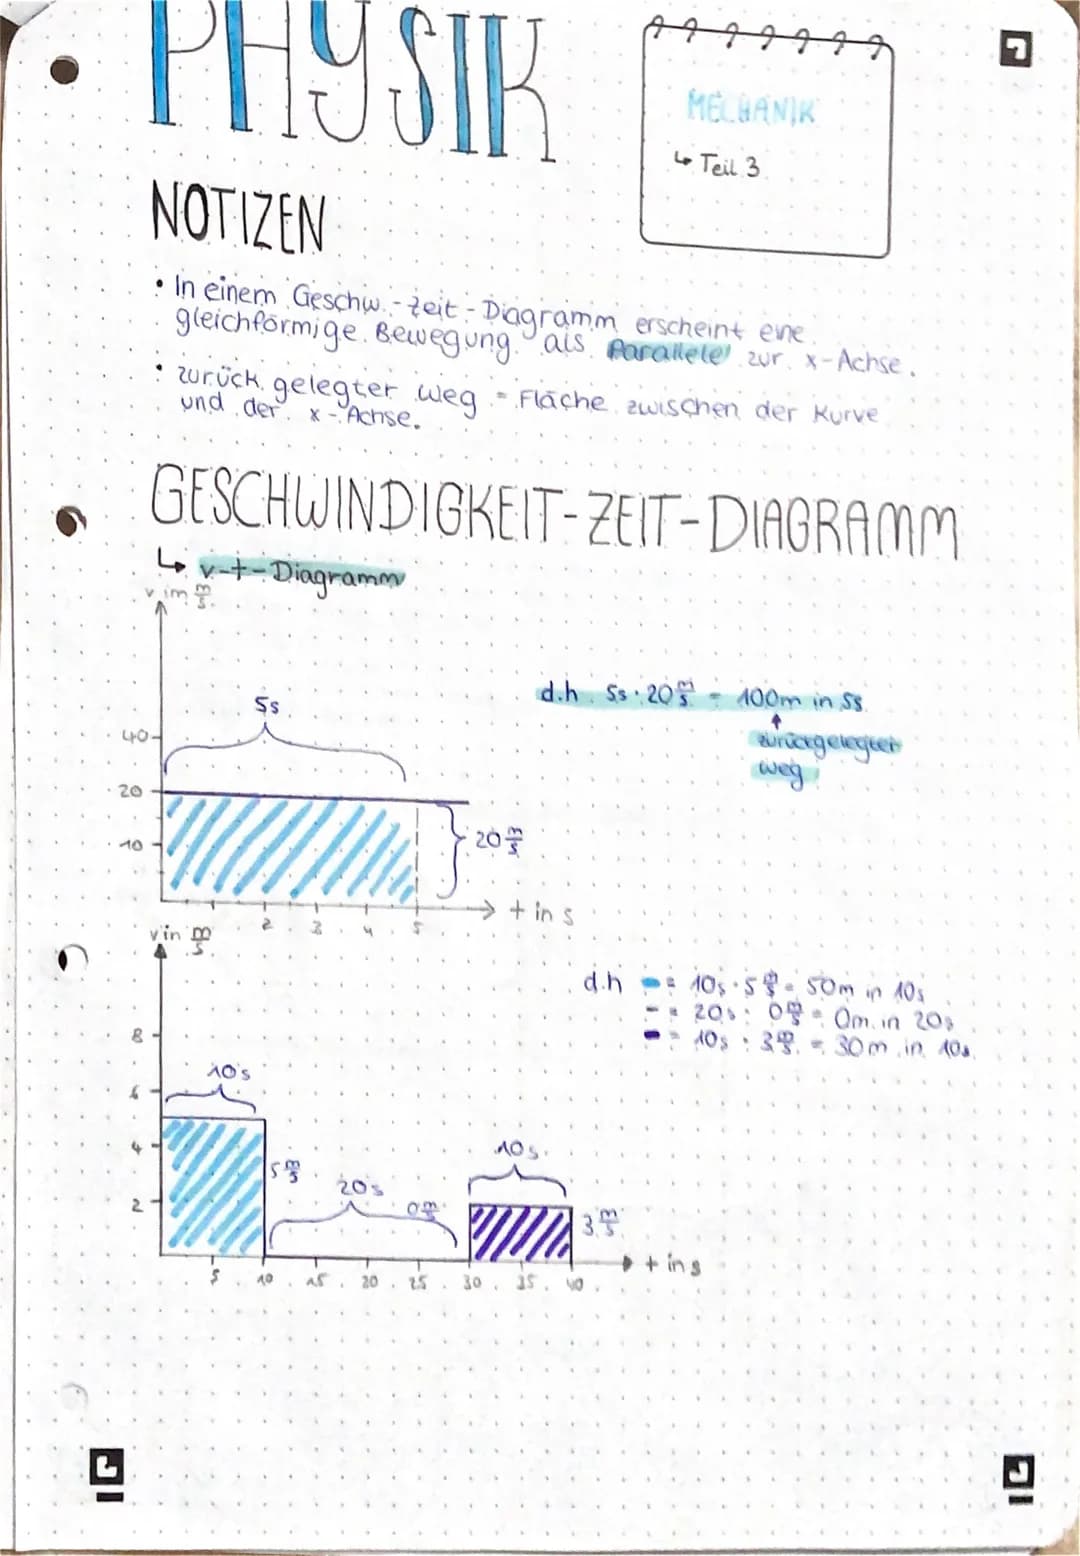 PHYSIK
MECHANIK
↳ Teil 3
NOTIZEN
• In einem Geschw.-Zeit-Diagramm erscheint eine
gleichförmige Bewegung als Parallele zur x-Achse.
• zurück gelegter weg = Fläche zwischen der Kurve
und der x-Achse.
GESCHWINDIGKEIT-ZEIT-DIAGRAMM
↳ v-t-Diagramm
v im m/s
5s
d.h. 5s · 20 m/s = 100m in 5s
zurückgelegter
weg
40
20
10
20 m/s
2 3 4 5
t in s
v in m/s
d.h = 10s · 5 m/s = 50m in 10s
= 20s · 0 m/s = 0m in 20s
= 10s · 3 m/s = 30m in 10s
8
6
4
2
10s
5 m/s
20s
0 m/s
10s
3 m/s
5 10 15 20 25 30 35 40
t in s